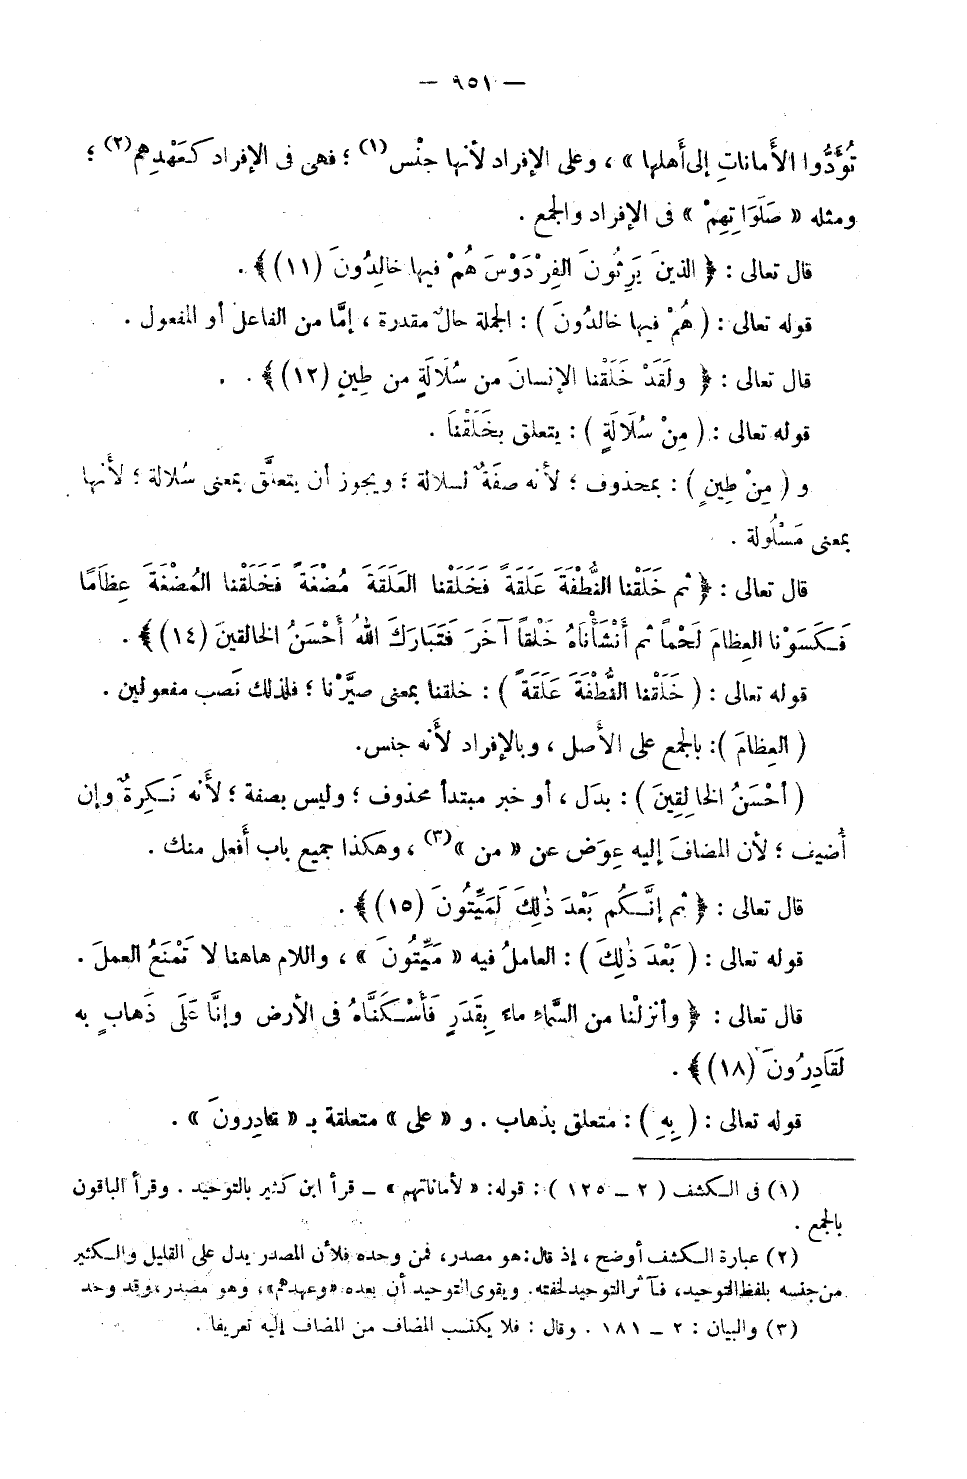 — ٩٥١ —
تُؤَدُّوا الأَماناتِ إلى أَهلها » ، وعلى الإفراد لأنها جنْس(١) ؛ فهى فى الإفراد كعَهْدِهم(٢) ؛
ومثله « صَلَوَاتِهِمْ » فى الإفراد والجمع .
قال تعالى : ﴿ الذينَ يَرِثُونَ الفِرْدَوْسَ هُمْ فيها خالِدُونَ (١١)﴾ .
قوله تعالى : ( هُمْ فيها خالدُونَ ) : الجملة حالٌ مقدرة ، إمَّا من الفاعل أو المفعول .
قال تعالى : ﴿ ولَقَدْ خَلَقْنا الإنسانَ من سُلَالَةٍ من طِينٍ (١٢)﴾ .
قوله تعالى : ( مِنْ سُلَالَةٍ ) : يتعلق بخَلَقْنَا .
و ( مِنْ طِينٍ ) : بمحذوف ؛ لأنه صفَةٌ لسلالة ؛ ويجوز أن يتعلَّق بمعنى سُلالة ؛ لأَنها
بمعنى مَسْلُولة .
قال تعالى : ﴿ ثم خَلَقْنا النُّطْفَةَ عَلَقَةً فَخَلَقْنا العَلَقَةَ مُضْغَةً فَخَلَقْنا المُضْغَةَ عِظَامًا
فَكَسَوْنا العِظامَ لَحْماً ثم أَنْشَأْناهُ خَلْقاً آخَرَ فَتَبارَكَ اللهُ أَحْسَنُ الخالقينَ (١٤)﴾ .
قوله تعالى : ( خَلَقْنا النُّطْفَةَ عَلَقَةً ) : خلقنا بمعنى صيَّرْنا ؛ فلذلك نَصب مفعولين .
( العِظامَ ): بالجمع على الأَصل ، وبالإفراد لأَنه جنس.
( أحْسَنُ الخالِقِينَ ) : بدَل ، أو خبر مبتدأ محذوف ؛ وليس بصفة ؛ لأَنه نَكِرةٌ وإن
أُضيف ؛ لأن المضافَ إليه عِوَض عن « من »(٣) ، وهكذا جميع باب أَفعل منك .
قال تعالى : ﴿ ثم إنَّكُم بَعْدَ ذٰلِكَ لَمَيِّتُونَ (١٥)﴾ .
قوله تعالى : ( بَعْدَ ذٰلِكَ ) : العاملُ فيه « مَيِّتُونَ » ، واللام هاهنا لا تَمْنَعُ العملَ .
قال تعالى : ﴿ وأنزلْنا من السَّماءِ ماءً بِقَدَرٍ فَأَسْكَنَّاهُ فى الأرض وإنَّا عَلَى ذَهابٍ به
لَقَادِرُونَ (١٨)﴾ .
قوله تعالى : ( بِهِ ) : متعلق بذهاب . و « على » متعلقة بـ « قادِرونَ » .
(١) فى الكشف ( ٢ – ١٢٥ ) : قوله: « لأماناتهم » – قرأ ابن كثير بالتوحيد . وقرأ الباقون
بالجمع .
(٢) عبارة الكشف أوضح ، إذ قال: هو مصدر، فمن وحده فلأن المصدر يدل على القليل والكثير
من جنسه بلفظ التوحيد، فآثر التوحيد لخفته. ويقوى التوحيد أن بعده «وعهدهم»، وهو مصدر، وقد وحد
(٣) والبيان : ٢ – ١٨١ . وقال : فلا يكتسب المضاف من المضاف إليه تعريفا .